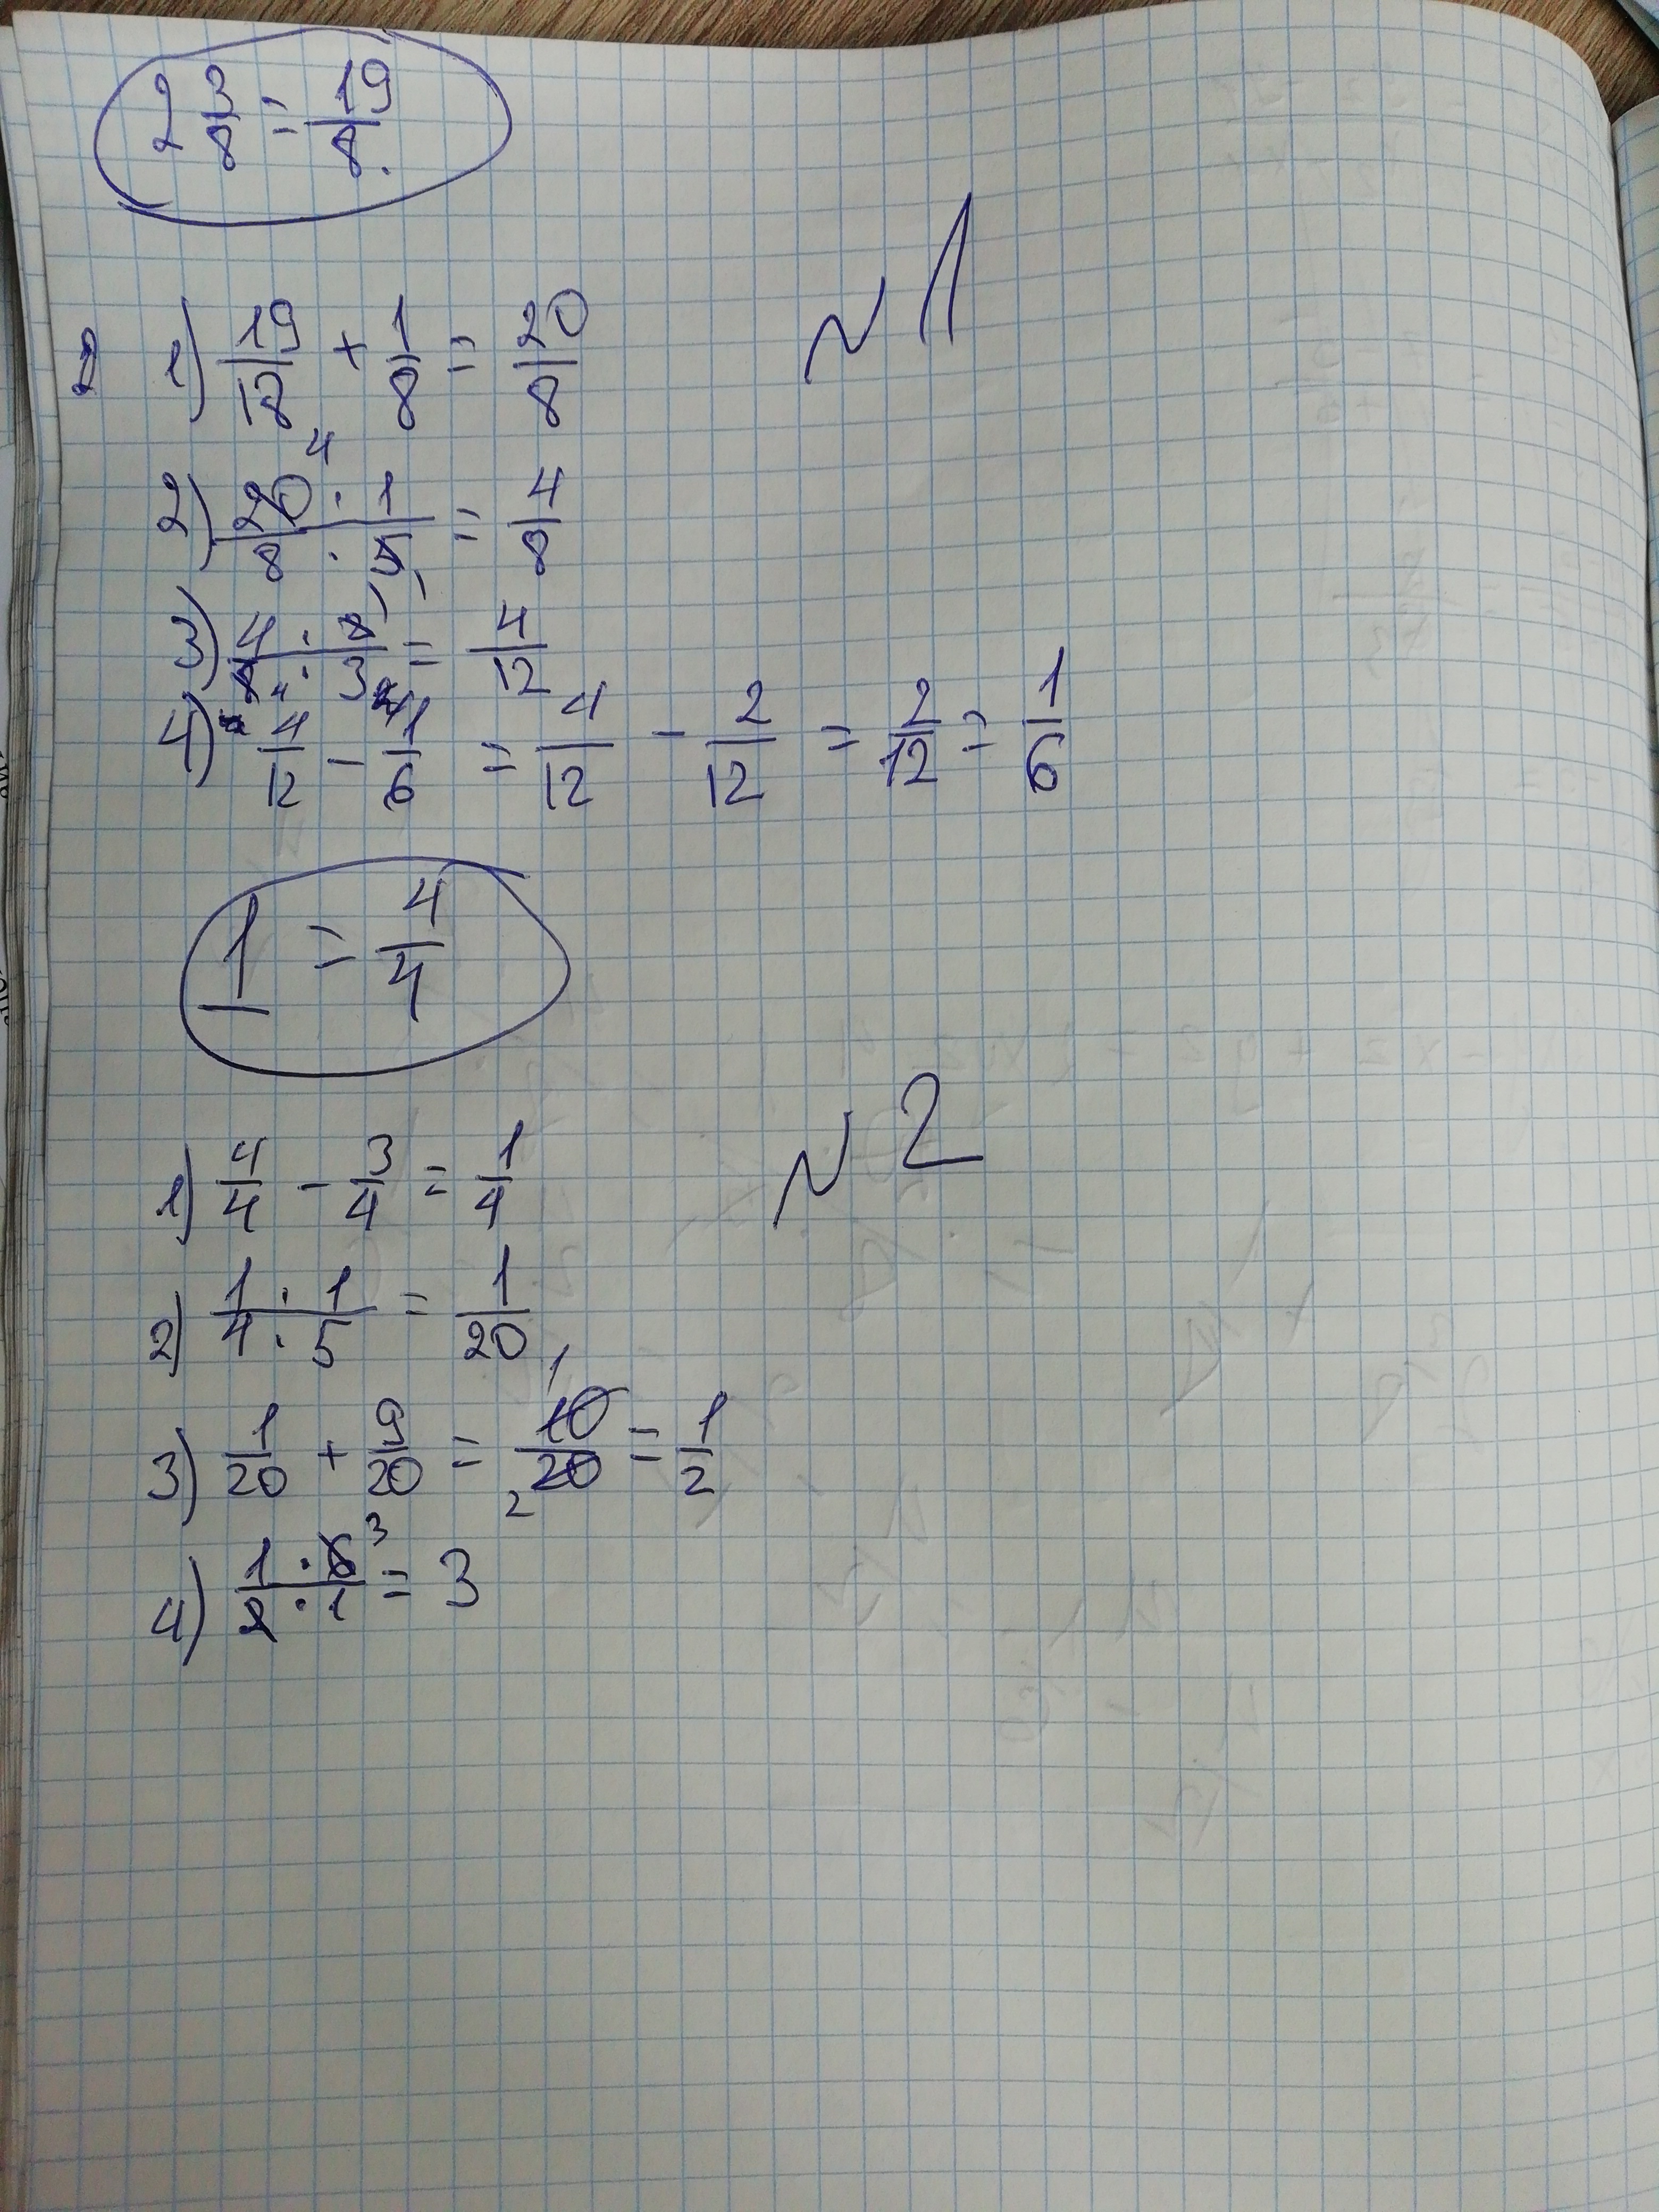 2 3/8 = 19/8.
№1
1) 19/18 + 1/8 = 20/8
2) 20 4 · 1 / 8 · 5 1 = 4/8
3) 4 · 2 1 / 8 4 · 3 = 4/12
4) 4/12 - 2 1/6 = 4/12 - 2/12 = 2/12 = 1/6
1 = 4/4
№2
1) 4/4 - 3/4 = 1/4
2) 1 · 1 / 4 · 5 = 1/20
3) 1/20 + 9/20 = 10 1 / 20 2 = 1/2
4) 1 · 6 3 / 2 · 1 = 3